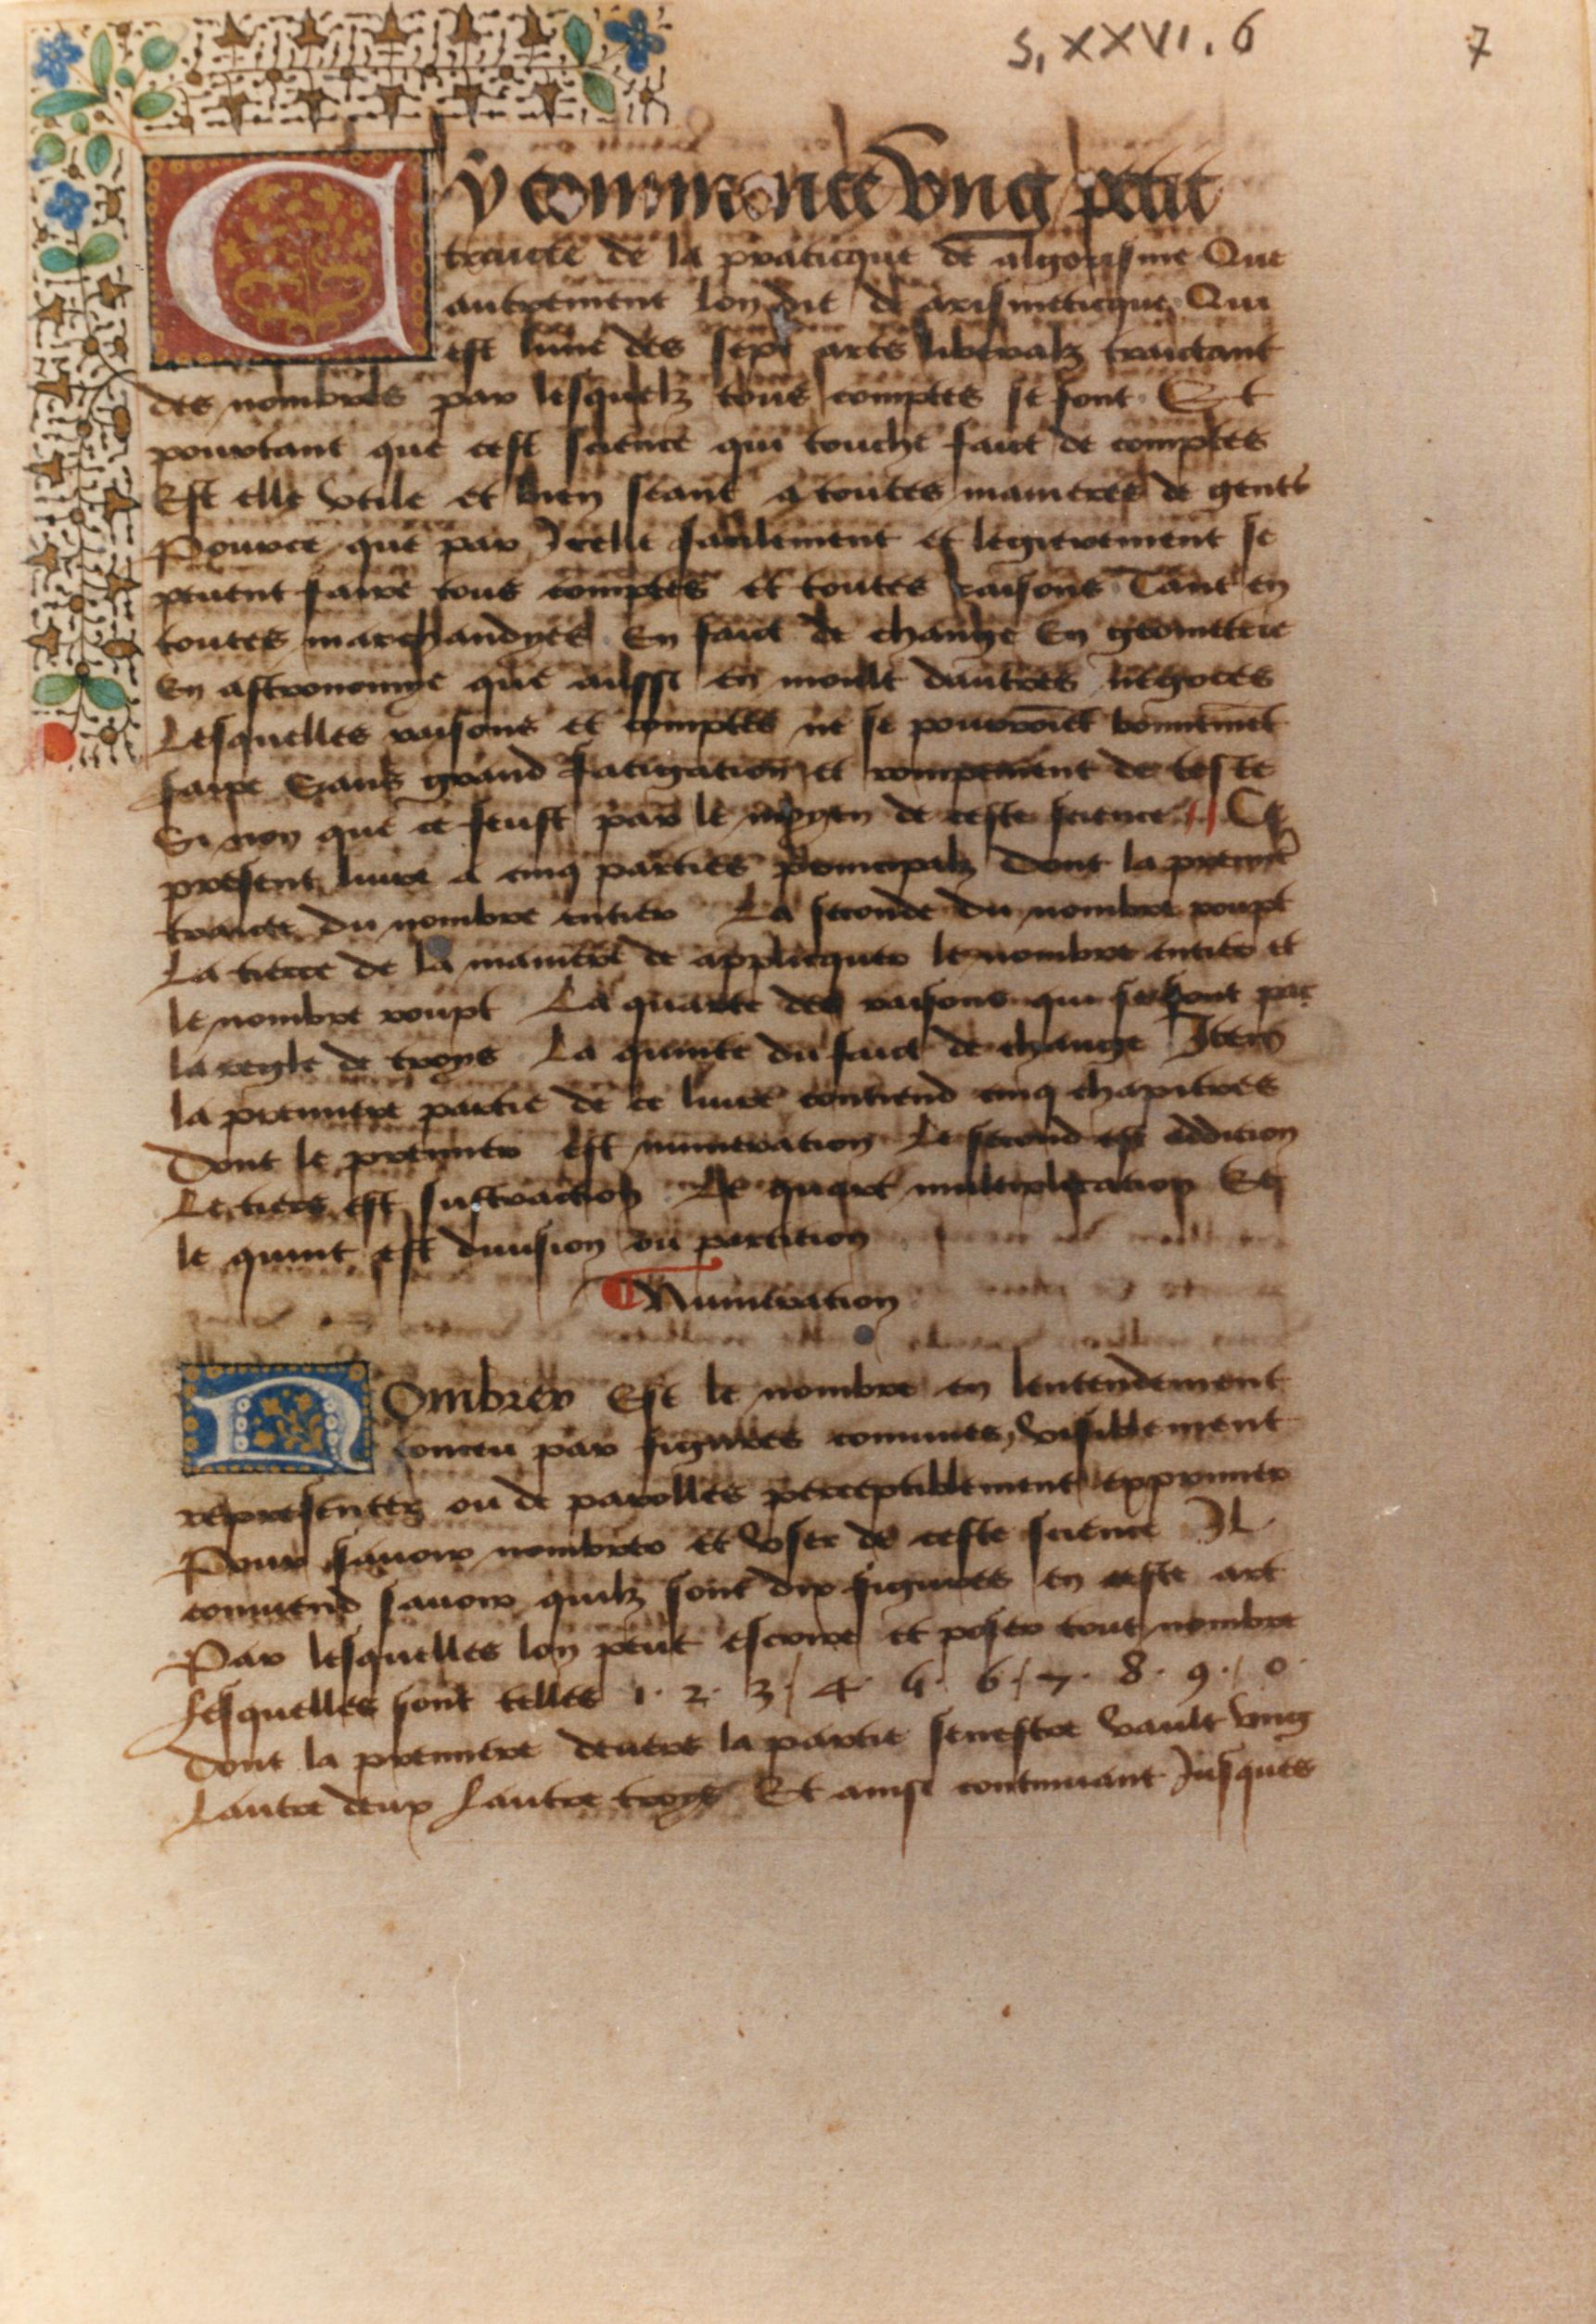 S. XXVI. 6
7
Cy commance vng petit
traicte de la praticque de algorisme Que
autrement lon dit de arismeticque Qui
est lune des sept arts liberalz traictant
des nombres par lesquelz tous comptes se font Et
pourtant que cest science qui touche fait de comptes
Est elle vtile et bien seant a toutes manieres de gents
Pource que par Icelle facilement et legierement se
peuent faire tous comptes et toutes raisons Tant en
toutes marchandyes En fait de change En geometrie
En astronomye que aussi en moult dautres
Lesquelles raisons et comptes ne se pourroiẽt bonnemẽt
faire Sans grand fatigation et rompement de teste
Si non que ce feust par le moyen de ceste science // Ce
present liure a cinq parties principalz Dont la premie
traicte du nombre entier La seconde du nombre roupt
La tierce de la maniere de applicquer le nombre entier et
le nombre roupt La quarte des raisons qui se font par
la regle de troys La quinte du faict de change Item
la premiere partie de ce liure contiend cinq chapitres
Dont le premier est numeration Le second est addition
Le tiers est sustraction Le quart multiplication Et
le quint est diuision ou partition
¶ Numeration
Nombrer Est le nombre en lentendement
conceu par figures communes visiblement
representer ou de parolles perceptiblement exprimer
Pour sauoir nombrer et vser de ceste science Il
conuiend sauoir quilz sont dix figures en ceste art
Par lesquelles lon peut escrire et poser tout nombre
Lesquelles sont telles 1 · 2 · 3 / 4 · 5 · 6 / 7 · 8 · 9 · / 0 ·
Dont la premiere deuers la partie senestre vault vng
Lautre deux Lautre troys Et ainsi continuant Jusques